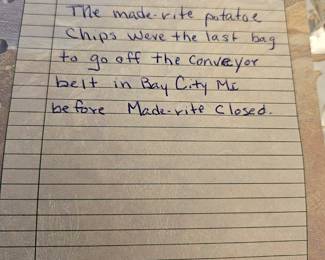 The made-rite potatoe
chips were the last bag
to go off the conveyor
belt in Bay City Mi
before Made-rite closed.